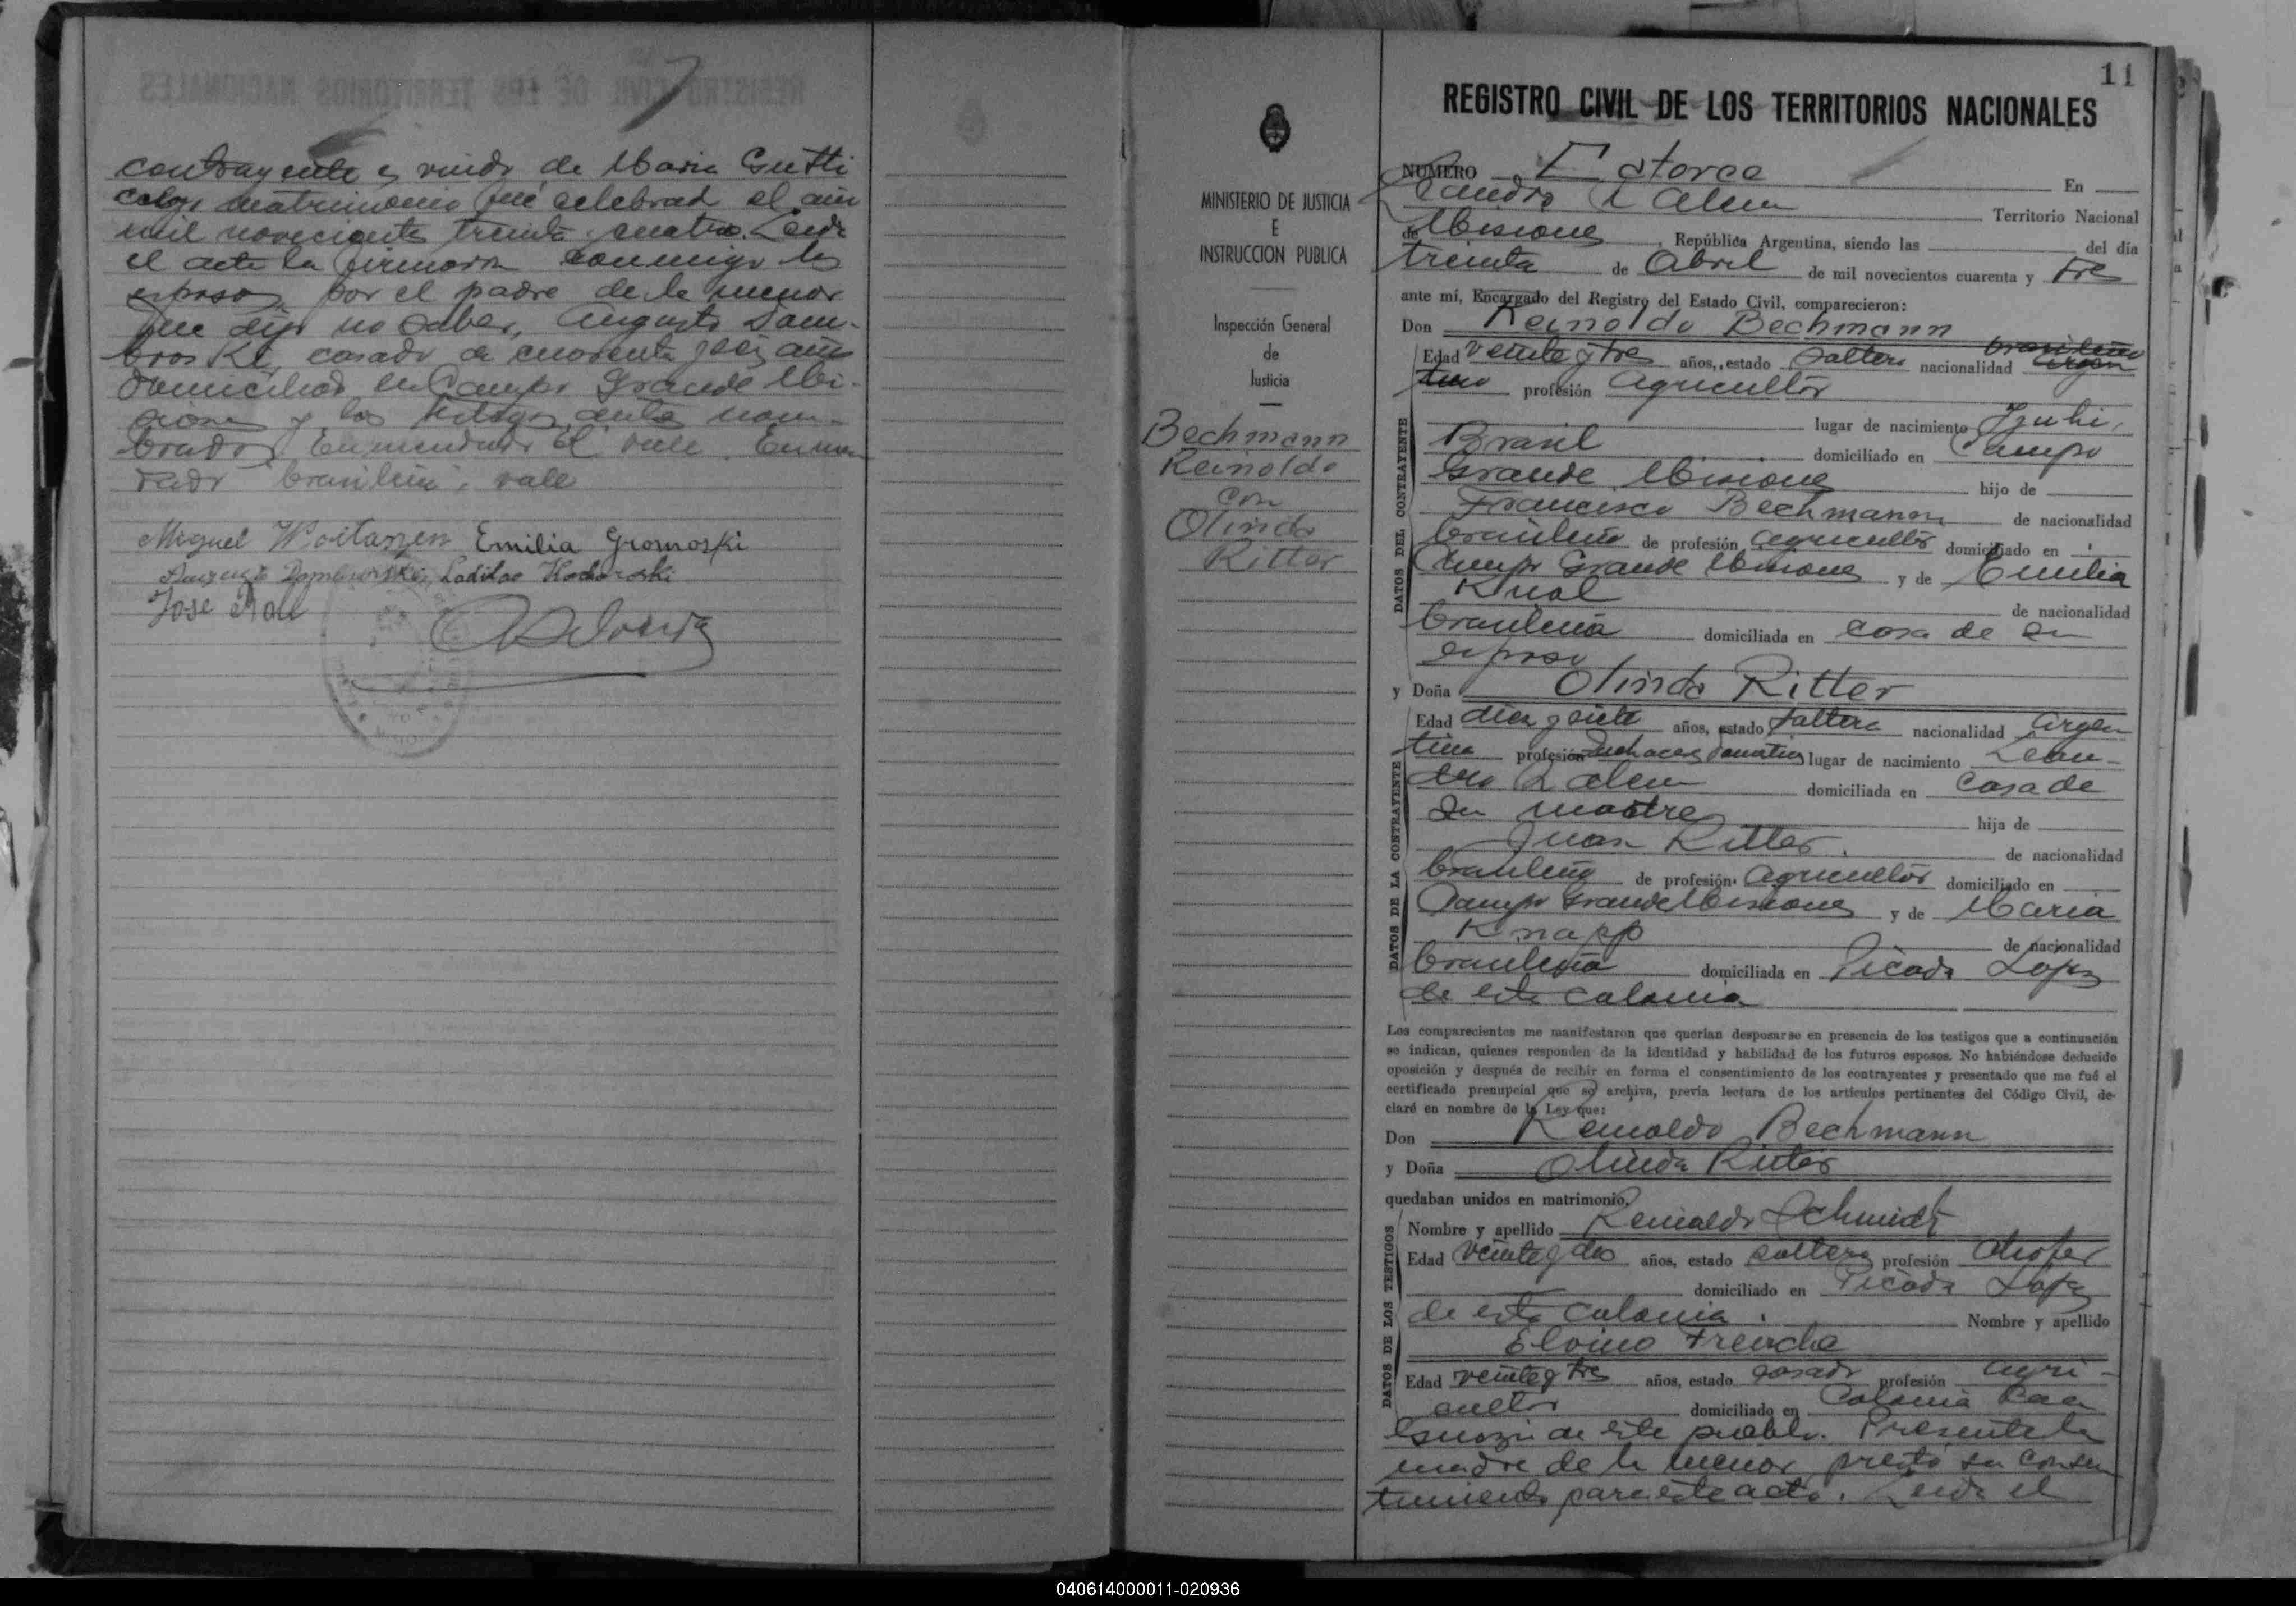 contrayente es viudo de Maria Gutti
cuyo matrimonio fué celebrado el año
mil novecientos treinta y cuatro. Leida
el acta la firmaron conmigo los
esposos, por el padre de la menor
que dijo no saber, Augusto Dam-
broski, casado de cuarenta y seis años
domiciliado en Campo Grande Mi-
siones y los testigos antes nom-
brados. Enmendado El vale. Enmen
dado brasileño, vale
Miguel Woitaszen Emilia Gromoski
Ladilao Kodoroski
Jose
11
REGISTRO CIVIL DE LOS TERRITORIOS NACIONALES
MINISTERIO DE JUSTICIA
E
INSTRUCCION PUBLICA
Inspección General
de
Justicia
Bechmann
Reinoldo
con
Olinda
Ritter
NUMERO Catorce En
Leandro N Alem Territorio Nacional
de Misiones, República Argentina, siendo las del día
treinta de Abril de mil novecientos cuarenta y tres
ante mí, Encargado del Registro del Estado Civil, comparecieron:
Don Reinoldo Bechmann
brasileño
Edad veinte y tres años, estado soltero nacionalidad argen
tino profesión agricultor
lugar de nacimiento Ijuhi,
Brasil domiciliado en Campo
Grande Misiones hijo de
Francisco Bechmann de nacionalidad
brasileño de profesión agricultor domiciliado en
Campo Grande Misiones y de Emilia
de nacionalidad
brasileña domiciliada en casa de su
esposo
y Doña Olinda Ritter
Edad diez y siete años, estado soltera nacionalidad argen
tina profesión quehaceres domesticos lugar de nacimiento Lean-
dro N Alem domiciliada en casa de
su madre hija de
Juan Ritter. de nacionalidad
brasileño de profesión agricultor domiciliado en
Campo Grande Misiones y de Maria
Knapp de nacionalidad
brasileña domiciliada en Picada Lopez
de esta colonia
Los comparecientes me manifestaron que querían desposarse en presencia de los testigos que a continuación
se indican, quienes responden de la identidad y habilidad de los futuros esposos. No habiéndose deducido
oposición y después de recibir en forma el consentimiento de los contrayentes y presentado que me fué el
certificado prenupcial que se archiva, previa lectura de los artículos pertinentes del Código Civil, de-
claré en nombre de la Ley que:
Don Reinoldo Bechmann
y Doña Olinda Ritter
quedaban unidos en matrimonio.
Nombre y apellido Reinaldo Schmidt
Edad veinte y dos años, estado soltero profesión chofer
domiciliado en Picada Lopez
de esta colonia. Nombre y apellido
Elvino
Edad veinte y tres años, estado casado profesión agri-
cultor domiciliado en Colonia Caa
Guazú de este pueblo. Presente la
madre de la menor prestó su consen
timiento para este acto. Leida el
DATOS DEL CONTRAYENTE
DATOS DE LA CONTRAYENTE
DATOS DE LOS TESTIGOS
040614000011-020936